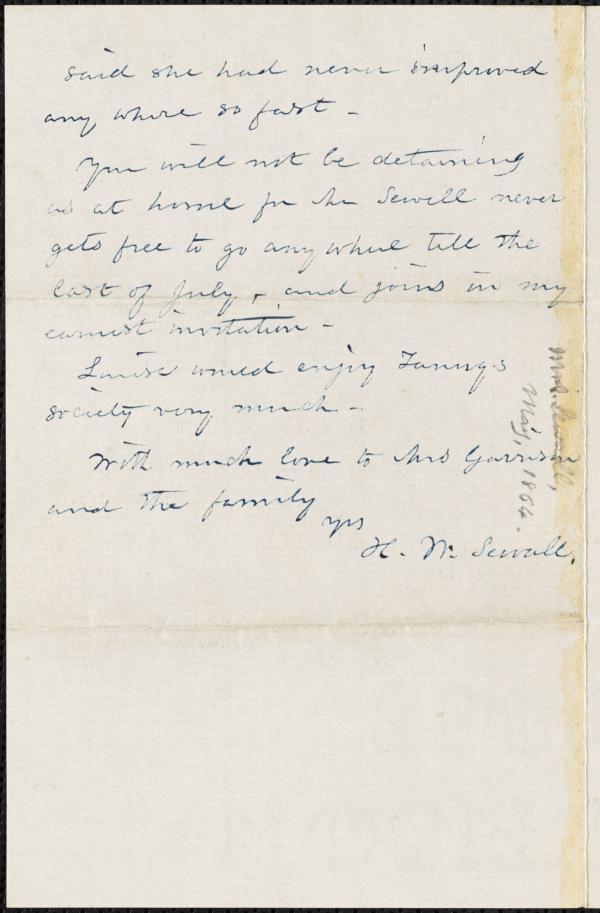 said she had never improved
any where so fast -
You will not be detaining
us at home for Mr Sewall never
gets free to go any where till the
last of July, and joins in my
earnest invitation -
Louise would enjoy Fanny's
society very much -
With much love to Mrs Garrison
and the family
yrs
H. W. Sewall.
Mrs. Sewall,
May, 1864.